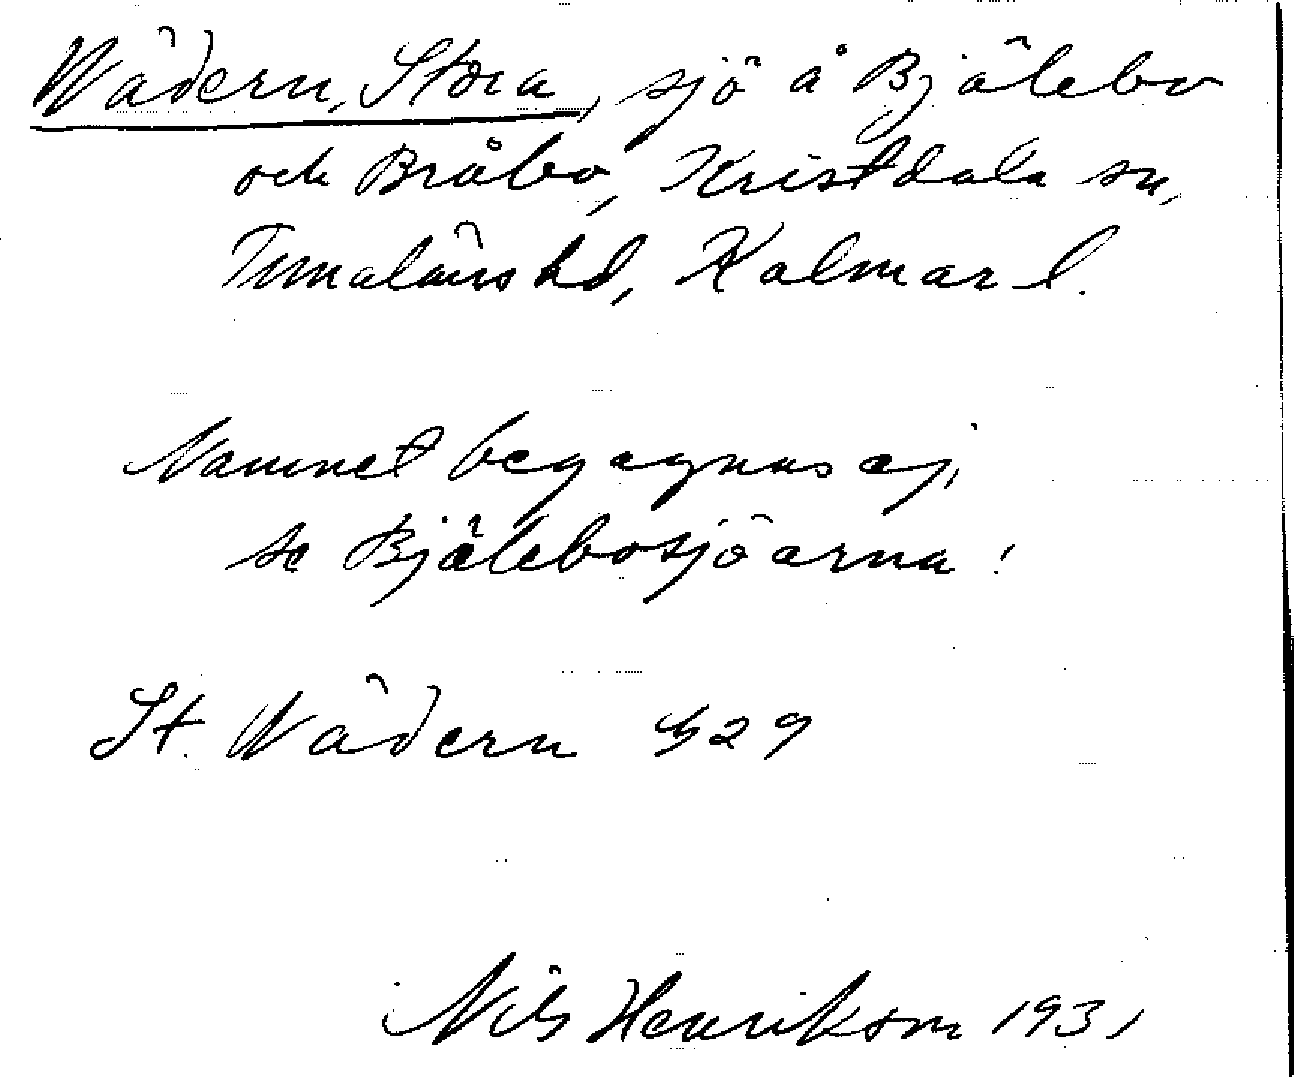 Wädern, Stora, sjö å Bjälebo
och Bråbo, Kristdala sn,
Tunaläns hd, Kalmar l.
Namnet begagnas ej,
se Bjälebosjöarna!
St. Wädern G29
Nils Henrikson 1931